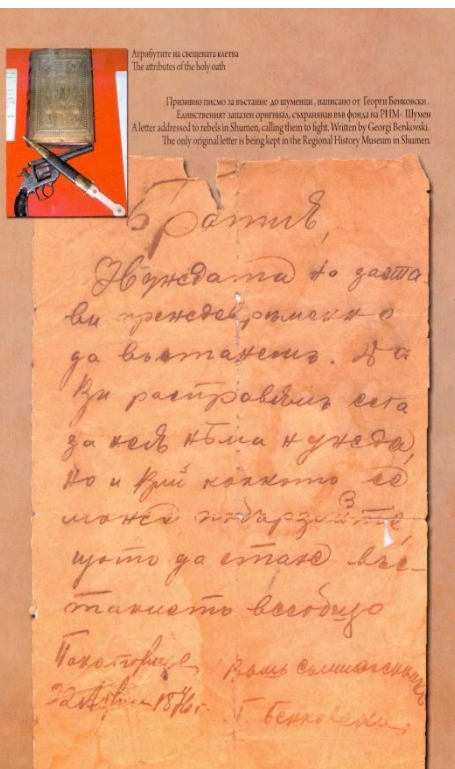 Атрибутите на свещената клетва
The attributes of the holy oath
Призивно писмо за въстание до шуменци, написано от Георги Бенковски.
Единственият запазен оригинал, съхраняван във фонда на РИМ- Шумен
A letter addressed to rebels in Shumen, calling them to fight. Written by Georgi Benkovski.
The only original letter is being kept in the Regional History Museum in Shumen.
Братия,
Нуждата на заста
ви преждевременно
да въстанемъ. Да
Ви расправямъ сега
за нея нѣма нужда,
Но и Вий колкото се
може
щото да стане въс-
танието всеобщо
22 Априлъ 1876 г.
Г. Бенковски.